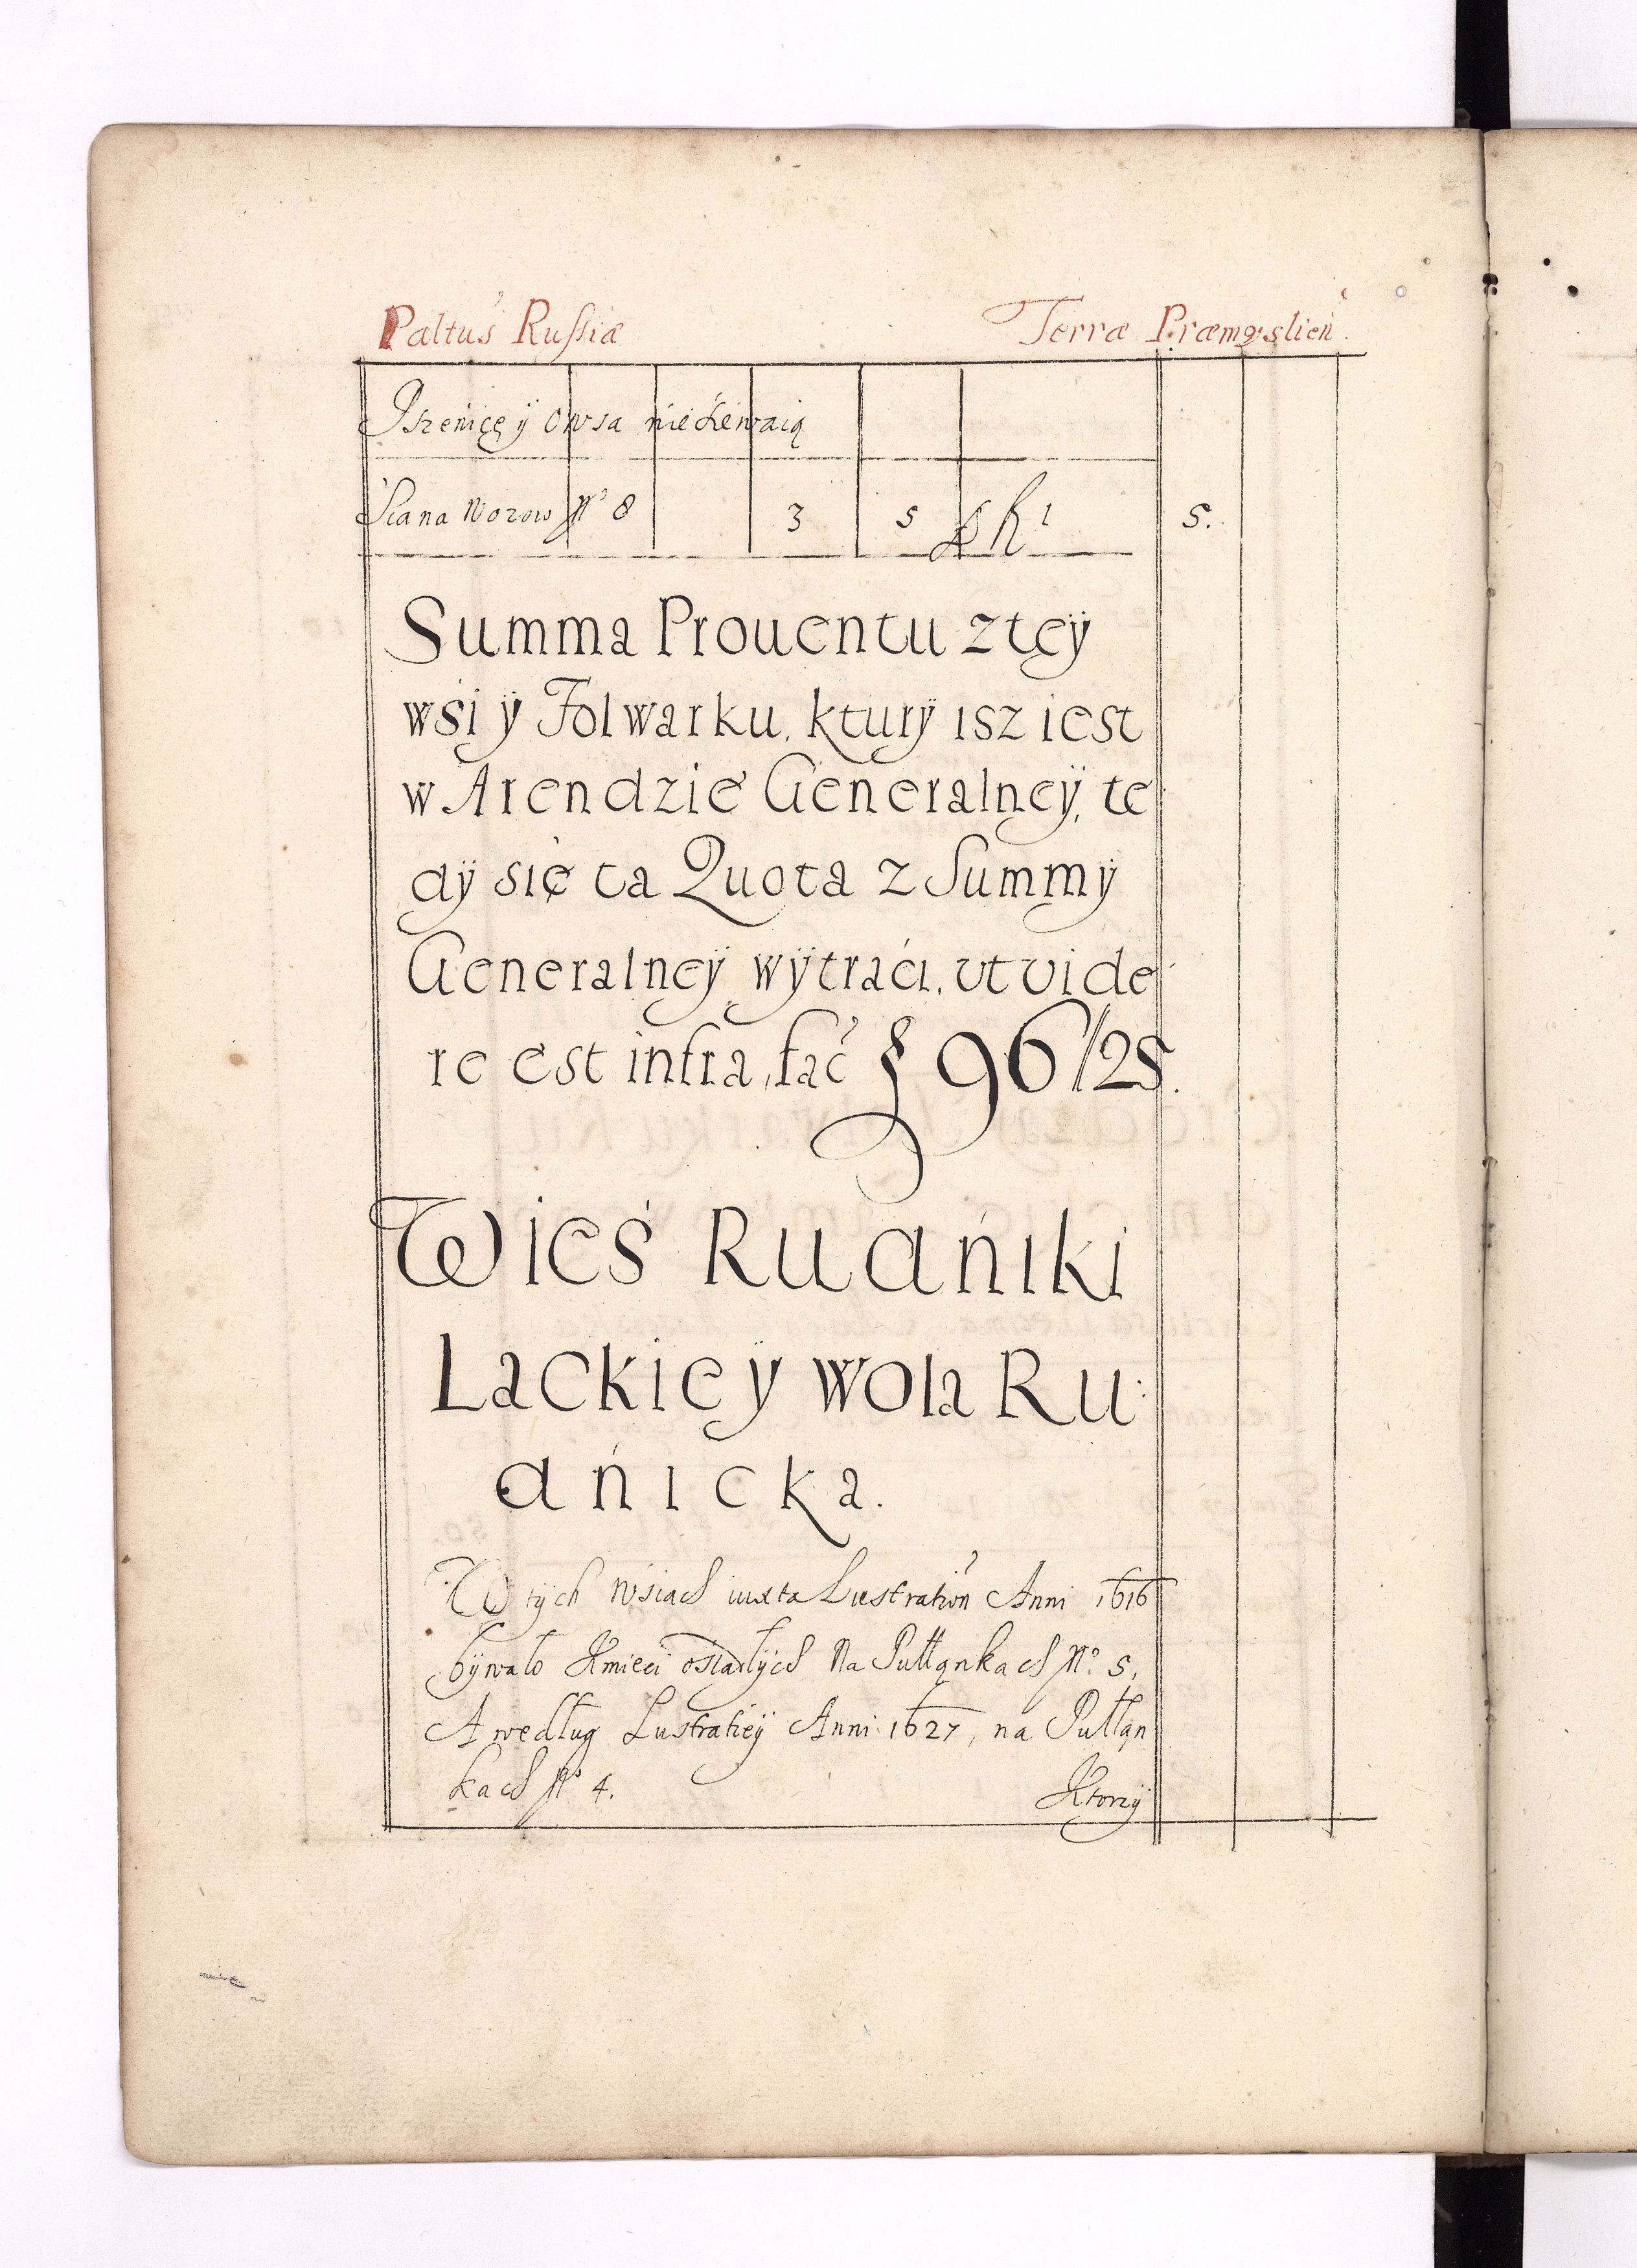 Paltus Russiæ Terræ Præmyslien.
Pszenicę ÿ owsa niechewaią
Siana Wozow Nº 8 3 5 1 5.
Summa Prouentu z teÿ
wsi ÿ Folwarku, kturÿ isz iest
w Arendzie Generalneÿ, te
dÿ się ta Quota z Summÿ
Generalneÿ wÿtraci, vt vide
re est infra, fać 96//25.
Wieś Rudńiki
Lackie ÿ Wola Ru:
dńicka.
W tÿch wsiach iuxta Lustration Anni 1616
bÿwało Kmieci osiadłÿch Na Pułłąnkach Nº 5,
A według Lustratieÿ Anni 1627, na Pułłąn
kach Nº 4. Ktorzÿ